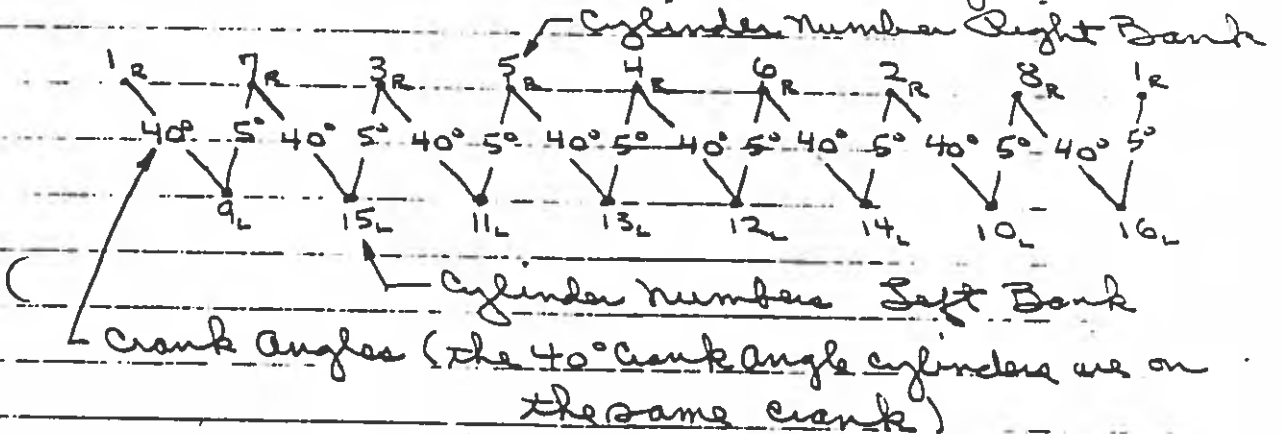 Cylinder Number Right Bank
1R 7R 3R 5R 4R 6R 2R 8R 1R
40° 5° 40° 5° 40° 5° 40° 5° 40° 5° 40° 5° 40° 5° 40° 5°
9L 15L 11L 13L 12L 14L 10L 16L
Cylinder Numbers Left Bank
Crank Angles (the 40° Crank Angle cylinders are on
the same crank)